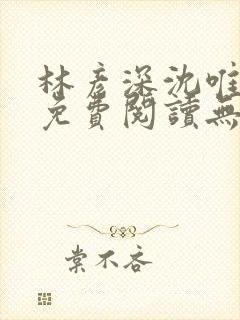 林彦深沈唯
免費閱讀無
棠不吝